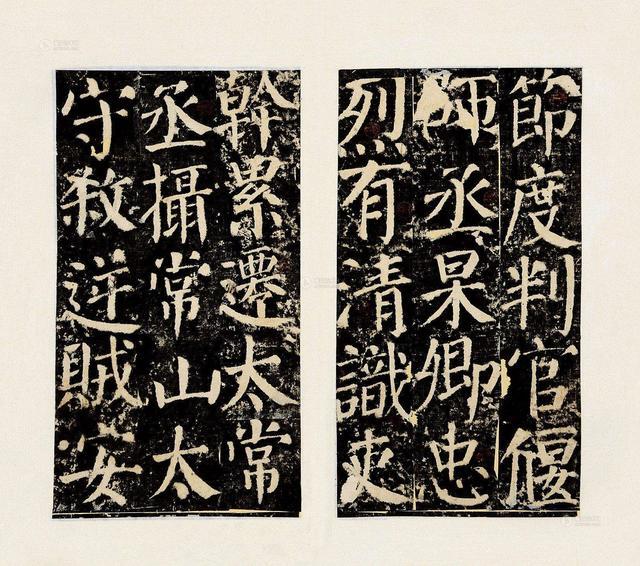 節度判官偃
師丞杲卿忠
烈有清識吏
幹累遷太常
丞攝常山太
守殺逆賊安